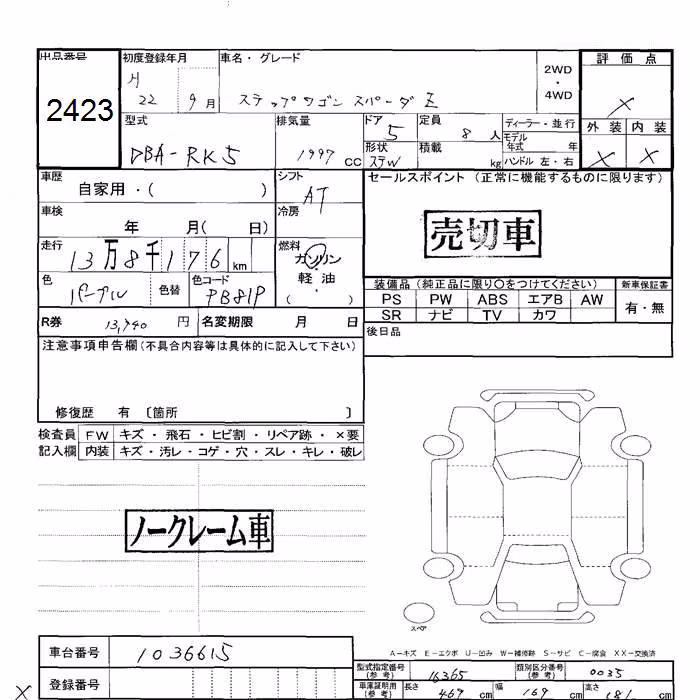 出品番号 初度登録年月 車名・グレード 2WD・4WD 評価点
2423
22 9月 ステップワゴン スパーダ Z
×
型式 排気量 ドア 定員 ディーラー・並行 外装 内装
DBA-RK5 1997 cc 5 8人 モデル年式 年
形状 積載 kg ハンドル 左・右 × ×
ステW
車歴 シフト セールスポイント (正常に機能するものに限ります)
自家用・( ) AT
車検 年 月( 日) 冷房
売切車
走行 燃料
13万8千176km ガソリン・軽油・( )
色 色替 色コード 装備品 (純正品に限り○をつけてください) 新車保証書
パープル PB81P PS PW ABS エアB AW 有・無
SR ナビ TV カワ
R券 13,740 円 名変期限 月 日
後日品
注意事項申告欄(不具合内容等は具体的に記入して下さい)
修復歴 有 〔箇所 〕
検査員 FW キズ・飛石・ヒビ割・リペア跡・×要
記入欄 内装 キズ・汚レ・コゲ・穴・スレ・キレ・破レ
ノークレーム車
スペア
A-キズ E-エクボ U-凹み W-補修跡 S-サビ C-腐食 XX-交換済
車台番号 1036615
型式指定番号(参考) 16365 類別区分番号(参考) 0035
登録番号
車庫証明用(参考) 長さ 469 cm 幅 169 cm 高さ 181 cm
×